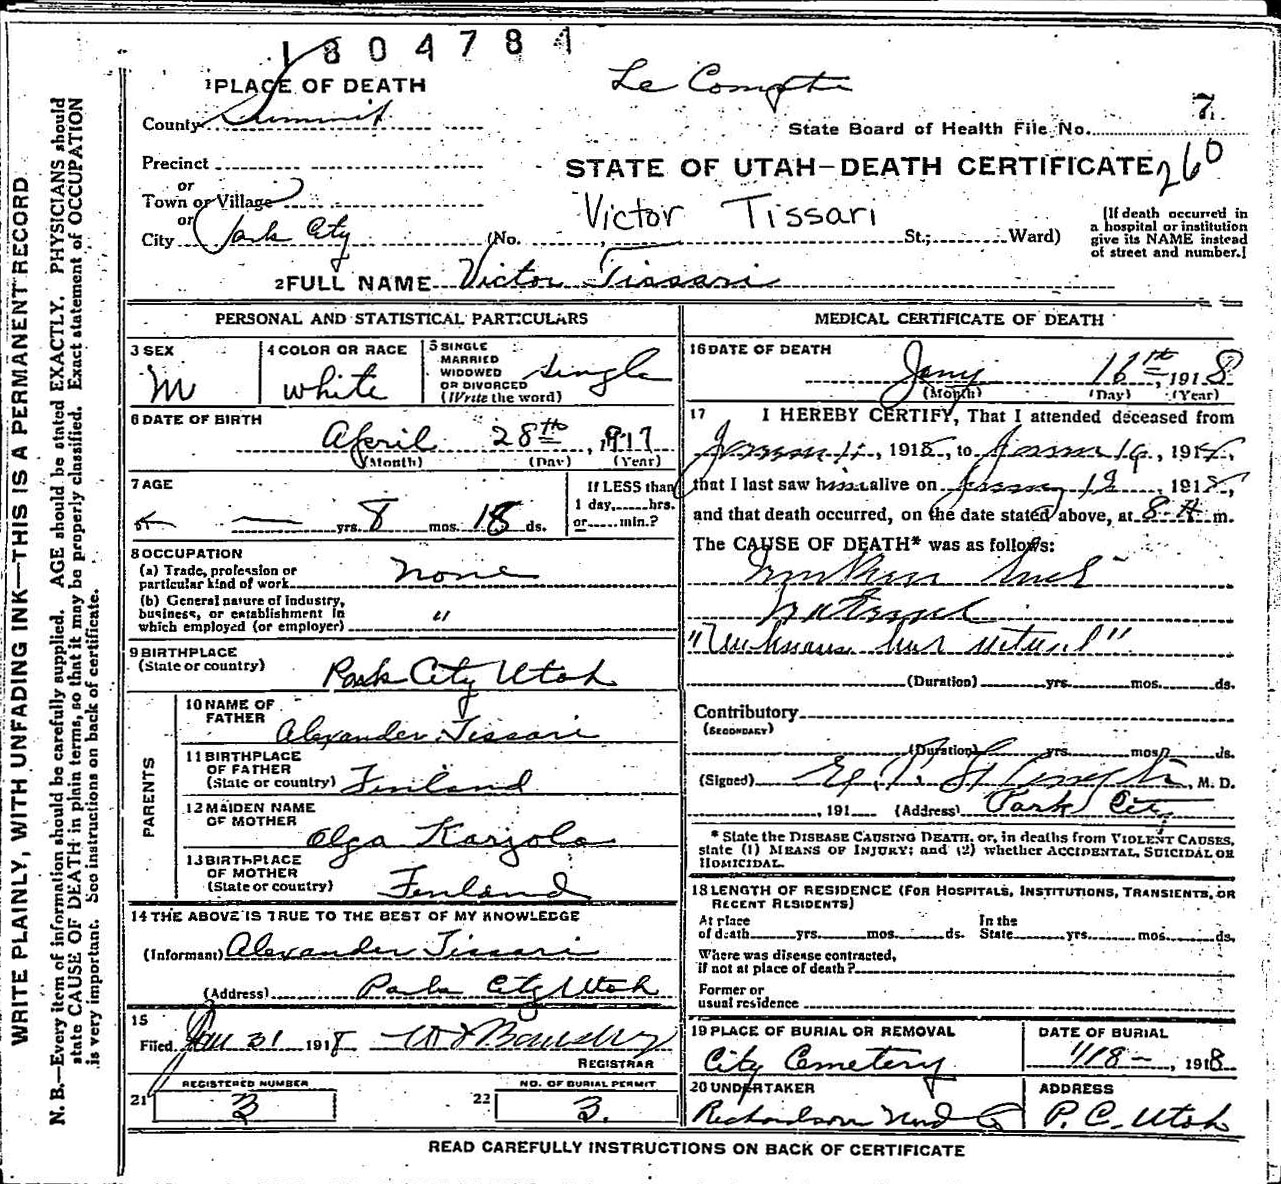 1804784
Le Compte
1 PLACE OF DEATH
County Summit
State Board of Health File No. 7
Precinct
STATE OF UTAH—DEATH CERTIFICATE 260
or
Town or Village
Victor Tissari
or
City Park City (No. St.; Ward)
[If death occurred in
a hospital or institution
give its NAME instead
of street and number.]
2 FULL NAME Victor Tissari
PERSONAL AND STATISTICAL PARTICULARS
3 SEX
M
4 COLOR OR RACE
white
5 SINGLE
MARRIED
WIDOWED
OR DIVORCED
(Write the word)
single
6 DATE OF BIRTH
April 28th, 1917
(Month) (Day) (Year)
7 AGE
— yrs. 8 mos. 18 ds.
If LESS than
1 day, hrs.
or min.?
8 OCCUPATION
(a) Trade, profession or
particular kind of work none
(b) General nature of industry,
business, or establishment in
which employed (or employer) "
9 BIRTHPLACE
(State or country) Park City Utah
PARENTS
10 NAME OF
FATHER Alexander Tissari
11 BIRTHPLACE
OF FATHER
(State or country) Finland
12 MAIDEN NAME
OF MOTHER Olga Karjola
13 BIRTHPLACE
OF MOTHER
(State or country) Finland
14 THE ABOVE IS TRUE TO THE BEST OF MY KNOWLEDGE
(Informant) Alexander Tissari
(Address) Park City Utah
15
Filed Jan 31 1918
REGISTRAR
REGISTERED NUMBER
21 3
NO. OF BURIAL PERMIT
22 3.
MEDICAL CERTIFICATE OF DEATH
16 DATE OF DEATH
Jany 16th, 1918
(Month) (Day) (Year)
17 I HEREBY CERTIFY, That I attended deceased from
, 1918, to , 191
that I last saw him alive on , 191
and that death occurred, on the date stated above, at 8 A m.
The CAUSE OF DEATH* was as follows:
(Duration) yrs. mos. ds.
Contributory
(SECONDARY)
(Duration) yrs. mos. ds.
(Signed) , M. D.
, 191 (Address) Park City
* State the DISEASE CAUSING DEATH, or, in deaths from VIOLENT CAUSES,
state (1) MEANS OF INJURY; and (2) whether ACCIDENTAL, SUICIDAL OR
HOMICIDAL.
18 LENGTH OF RESIDENCE (FOR HOSPITALS, INSTITUTIONS, TRANSIENTS, OR
RECENT RESIDENTS)
At place
of death yrs. mos. ds.
In the
State yrs. mos. ds.
Where was disease contracted,
if not at place of death?
Former or
usual residence
19 PLACE OF BURIAL OR REMOVAL
City Cemetery
DATE OF BURIAL
1/18 —, 1918
20 UNDERTAKER
Richardson Und Co
ADDRESS
P. C. Utah
READ CAREFULLY INSTRUCTIONS ON BACK OF CERTIFICATE
WRITE PLAINLY, WITH UNFADING INK—THIS IS A PERMANENT RECORD
N. B.—Every item of information should be carefully supplied. AGE should be stated EXACTLY. PHYSICIANS should
state CAUSE OF DEATH in plain terms, so that it may be properly classified. Exact statement of OCCUPATION
is very important. See instructions on back of certificate.